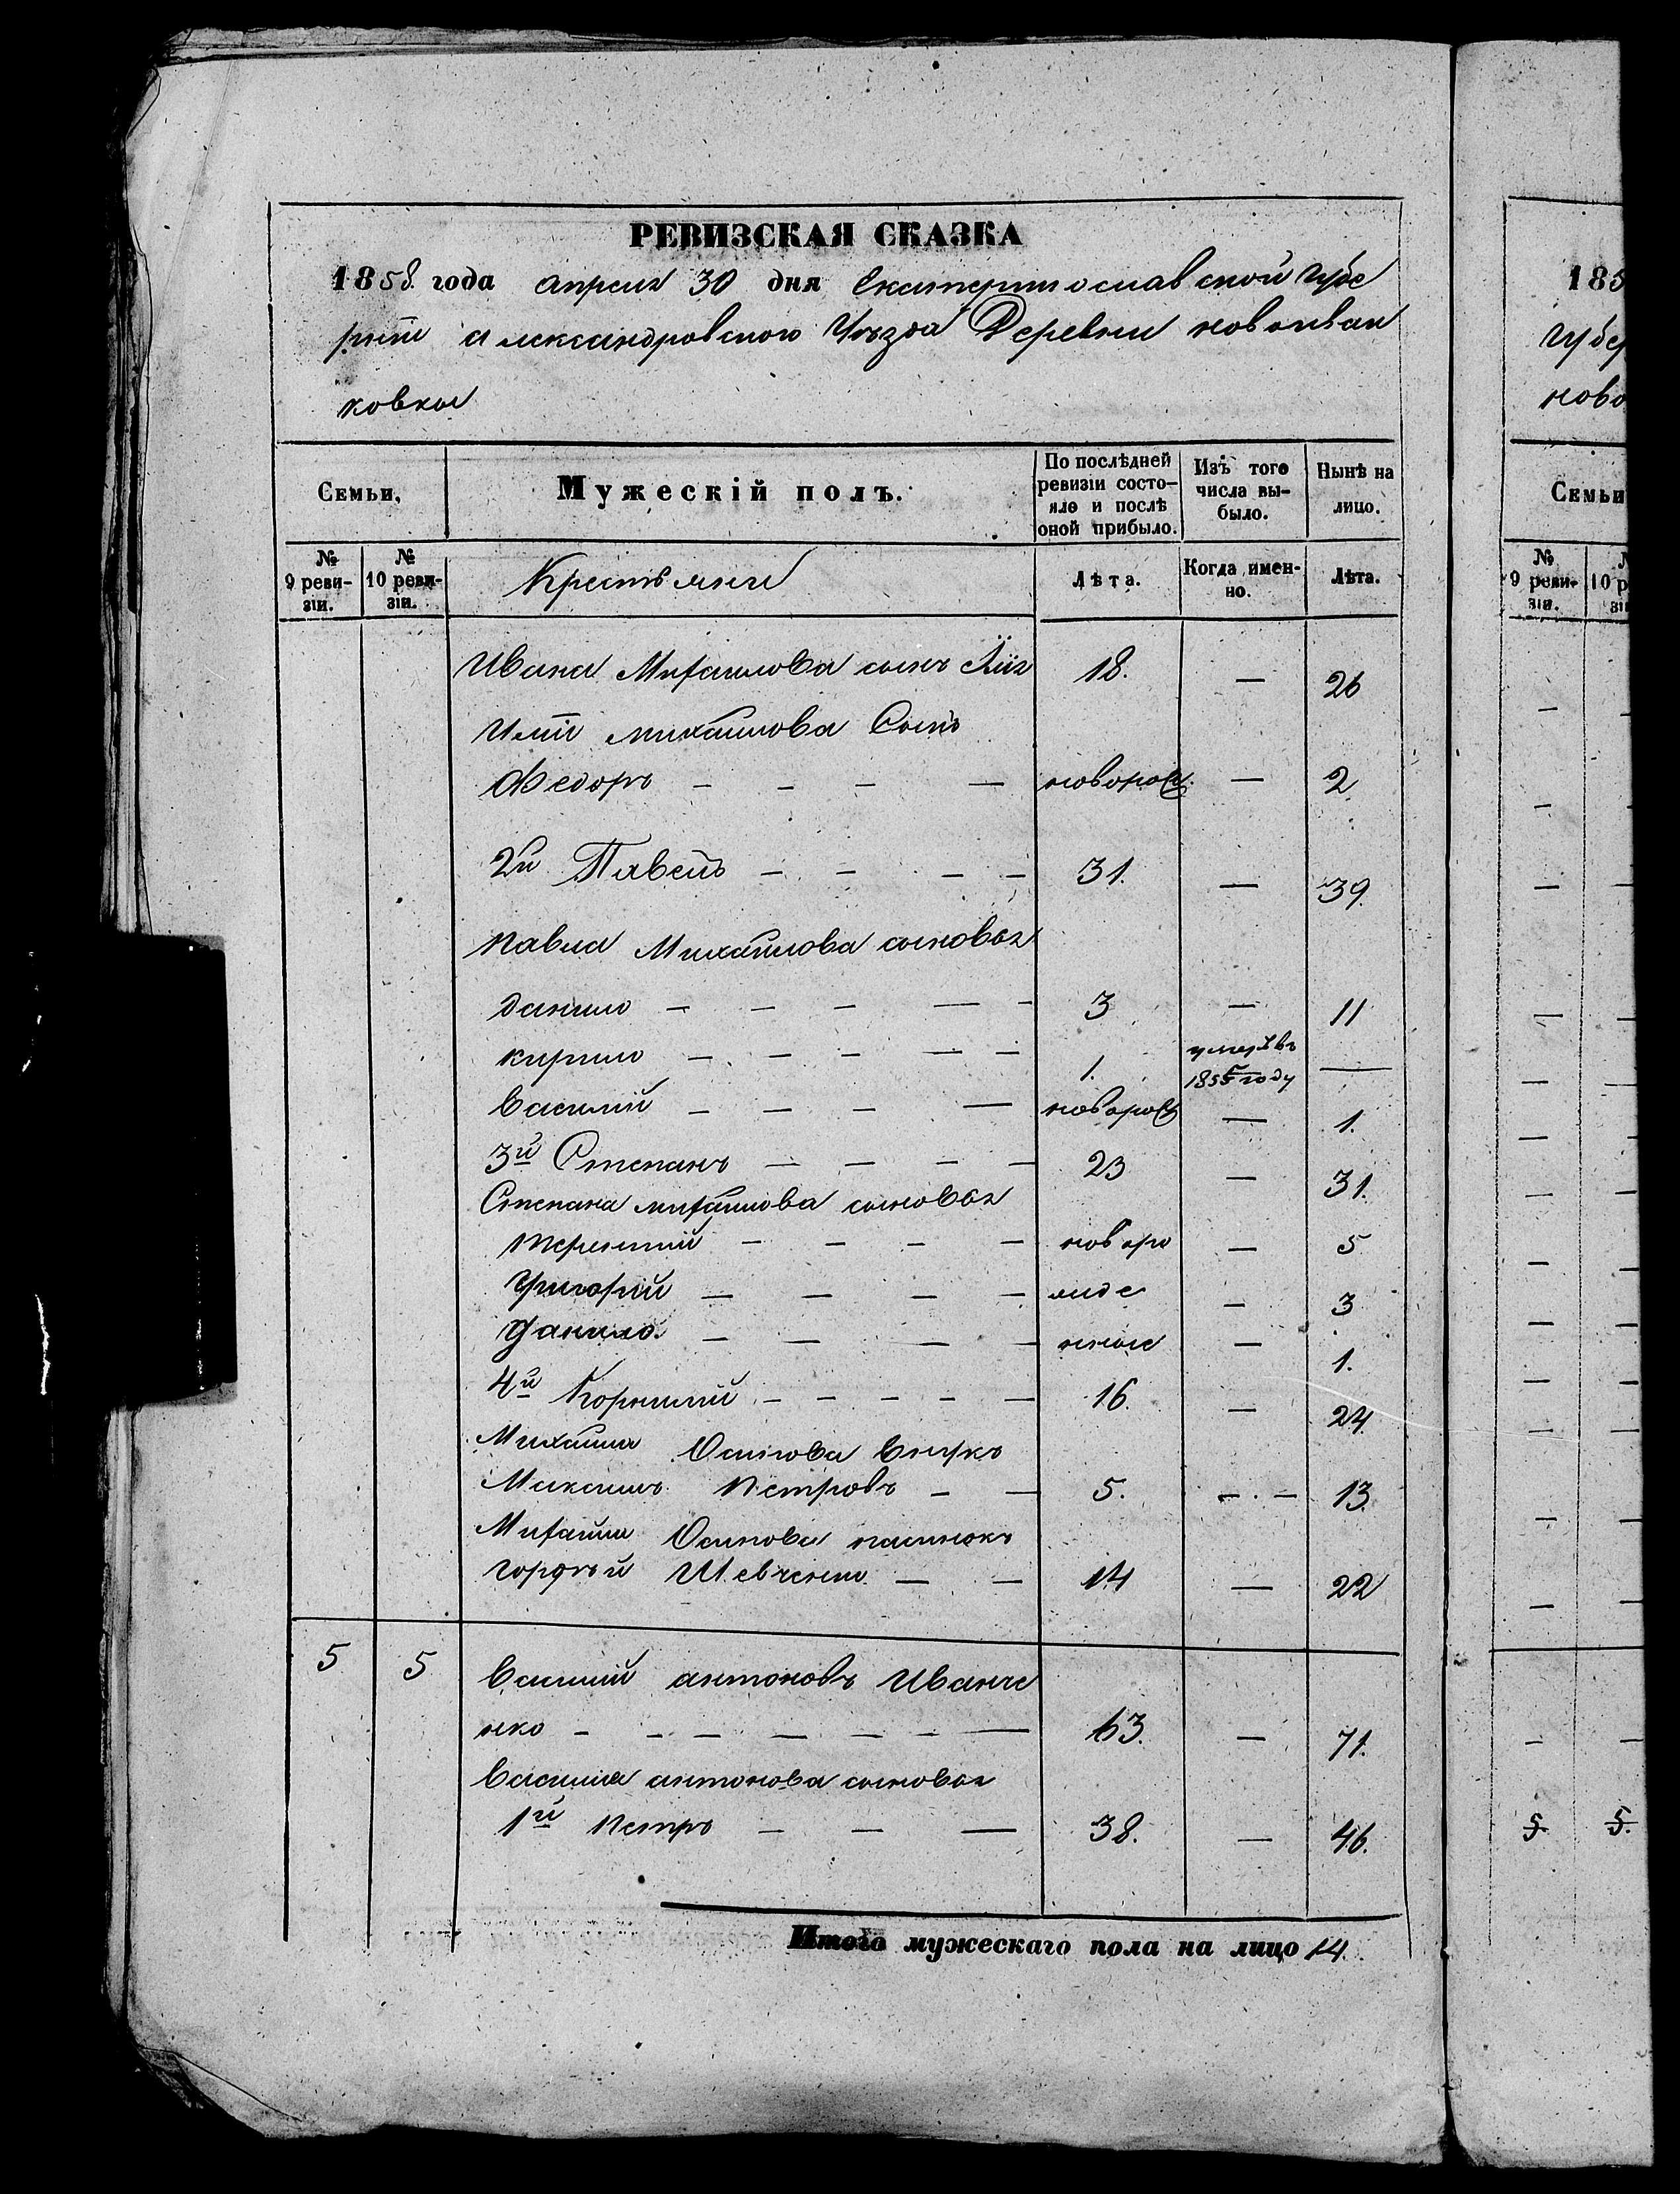 РЕВИЗСКАЯ СКАЗКА
1858. года апреля 30 дня Екатеринославской Губе
рніи александровского Уѣзда Деревни новоиван
ковки
Семьи,
Мужескій полъ.
По послѣдней ревизіи состо-
яло и послѣ оной прибыло.
Изъ того числа вы-
было.
Нынѣ на лицо.
№ 9 реви-
зіи.
№ 10 реви-
зіи.
Крестьяне
Лѣта.
Когда имен-
но.
Лѣта.
Ивана Михайлова сынъ 18. — 26
Михайлова Сынъ
Федоръ — — — — новорож — 2
2й Павелъ — — — — 31. — 39.
Павла Михайлова сыновья
Данило — — — — — 3 — 11
кирило — — — — — 1. умеръ въ 1855 году —
Василий — — — — новорож — 1.
3й Степанъ — — — — 23 — 31.
Степана михайлова сыновья
терентий — — — — новоро — 5
Григорий — — — — жде — 3
Данило. — — — — нные — 1.
4й Корнилий — — — — — 16. — 24
Михаила Осипова внукъ
Максимъ Петровъ — — 5. — . — 13.
Михаила Осипова пасынокъ
гордѣй Шевченко — — 14 — 22
5 5 Василий антоновъ Иванче
нко — — — — — — — 63. — 71.
Василия антонова сыновья
1й Петръ — — — 38. — 46.
Итого мужескаго пола на лицо 14.
185
Губер
ново
Семьи
№ 9 реви-
зіи.
10 р
зі
5. 5.